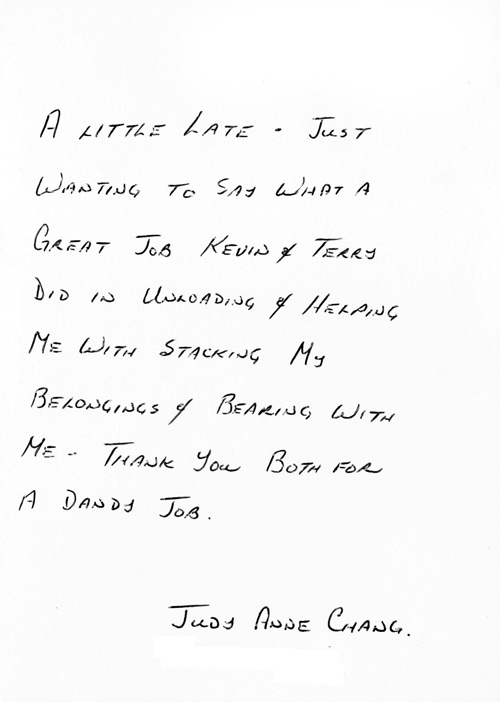 A LITTLE LATE - JUST
WANTING TO SAY WHAT A
GREAT JOB KEVIN & TERRY
DID IN UNLOADING & HELPING
ME WITH STACKING MY
BELONGINGS & BEARING WITH
ME - THANK YOU BOTH FOR
A DANDY JOB.
JUDY ANNE CHANG.